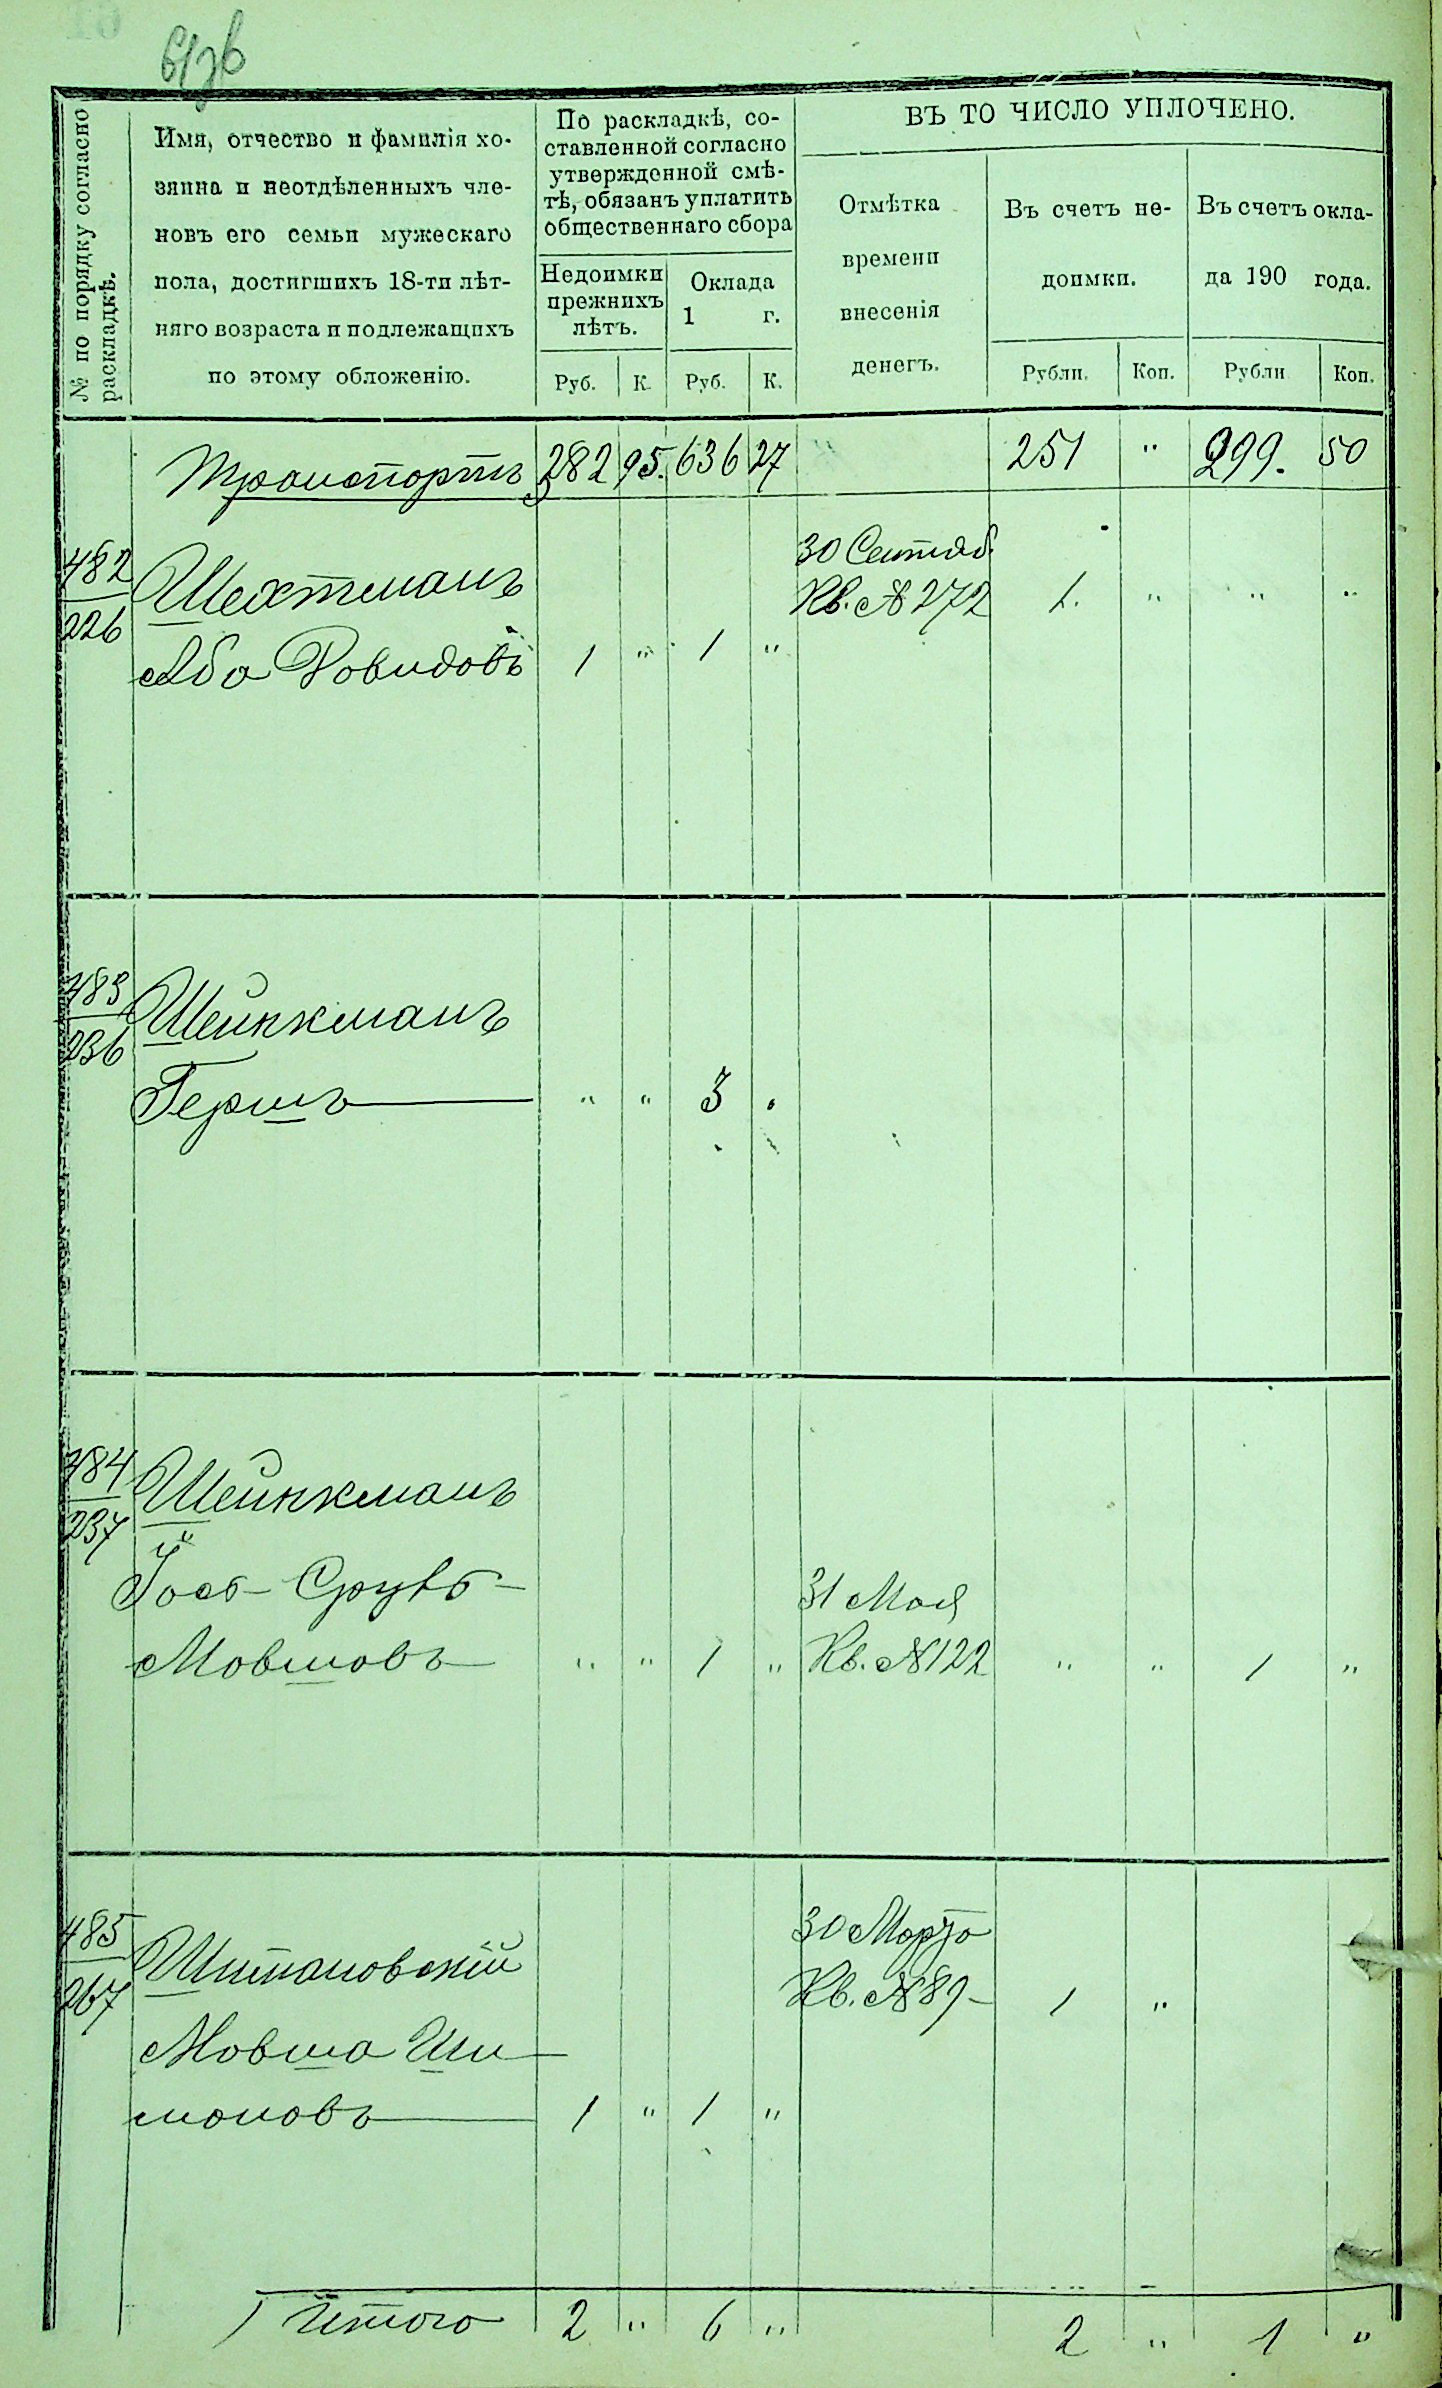 № по порядку согласно
раскладкѣ.
Имя, отчество и фамилія хо-
зяина и неотдѣленныхъ чле-
новъ его семьи мужескаго
пола, достигшихъ 18-ти лѣт-
няго возраста и подлежащихъ
по этому обложенію.
По раскладкѣ, со-
ставленной согласно
утвержденной смѣ-
тѣ, обязанъ уплатить
общественнаго сбора
Недоимки
прежнихъ
лѣтъ.
Оклада
1 г.
Руб. К. Руб. К.
ВЪ ТО ЧИСЛО УПЛОЧЕНО.
Отмѣтка
времени
внесенія
денегъ.
Въ счетъ не-
доимки.
Въ счетъ окла-
да 190 года.
Рубли. Коп. Рубли Коп.
Транспортъ 282 95. 636 27 251 " 299. 50
482
226
Шехтманъ
Аба Довидовъ 1 " 1 "
30 Сентяб.
Кв. № 272 1. " " "
483
236
Шейнкманъ
Гершъ " " 3 "
484
237
Шейнкманъ
Іосъ-Срулъ-
Мовшовъ " " 1 "
31 Мая
Кв. № 122 " " 1 "
485
267
Шитановскій
Мовша Ши-
моновъ 1 " 1 "
30 Марта
Кв. № 89 1 "
Итого 2 " 6 " 2 " 1 "